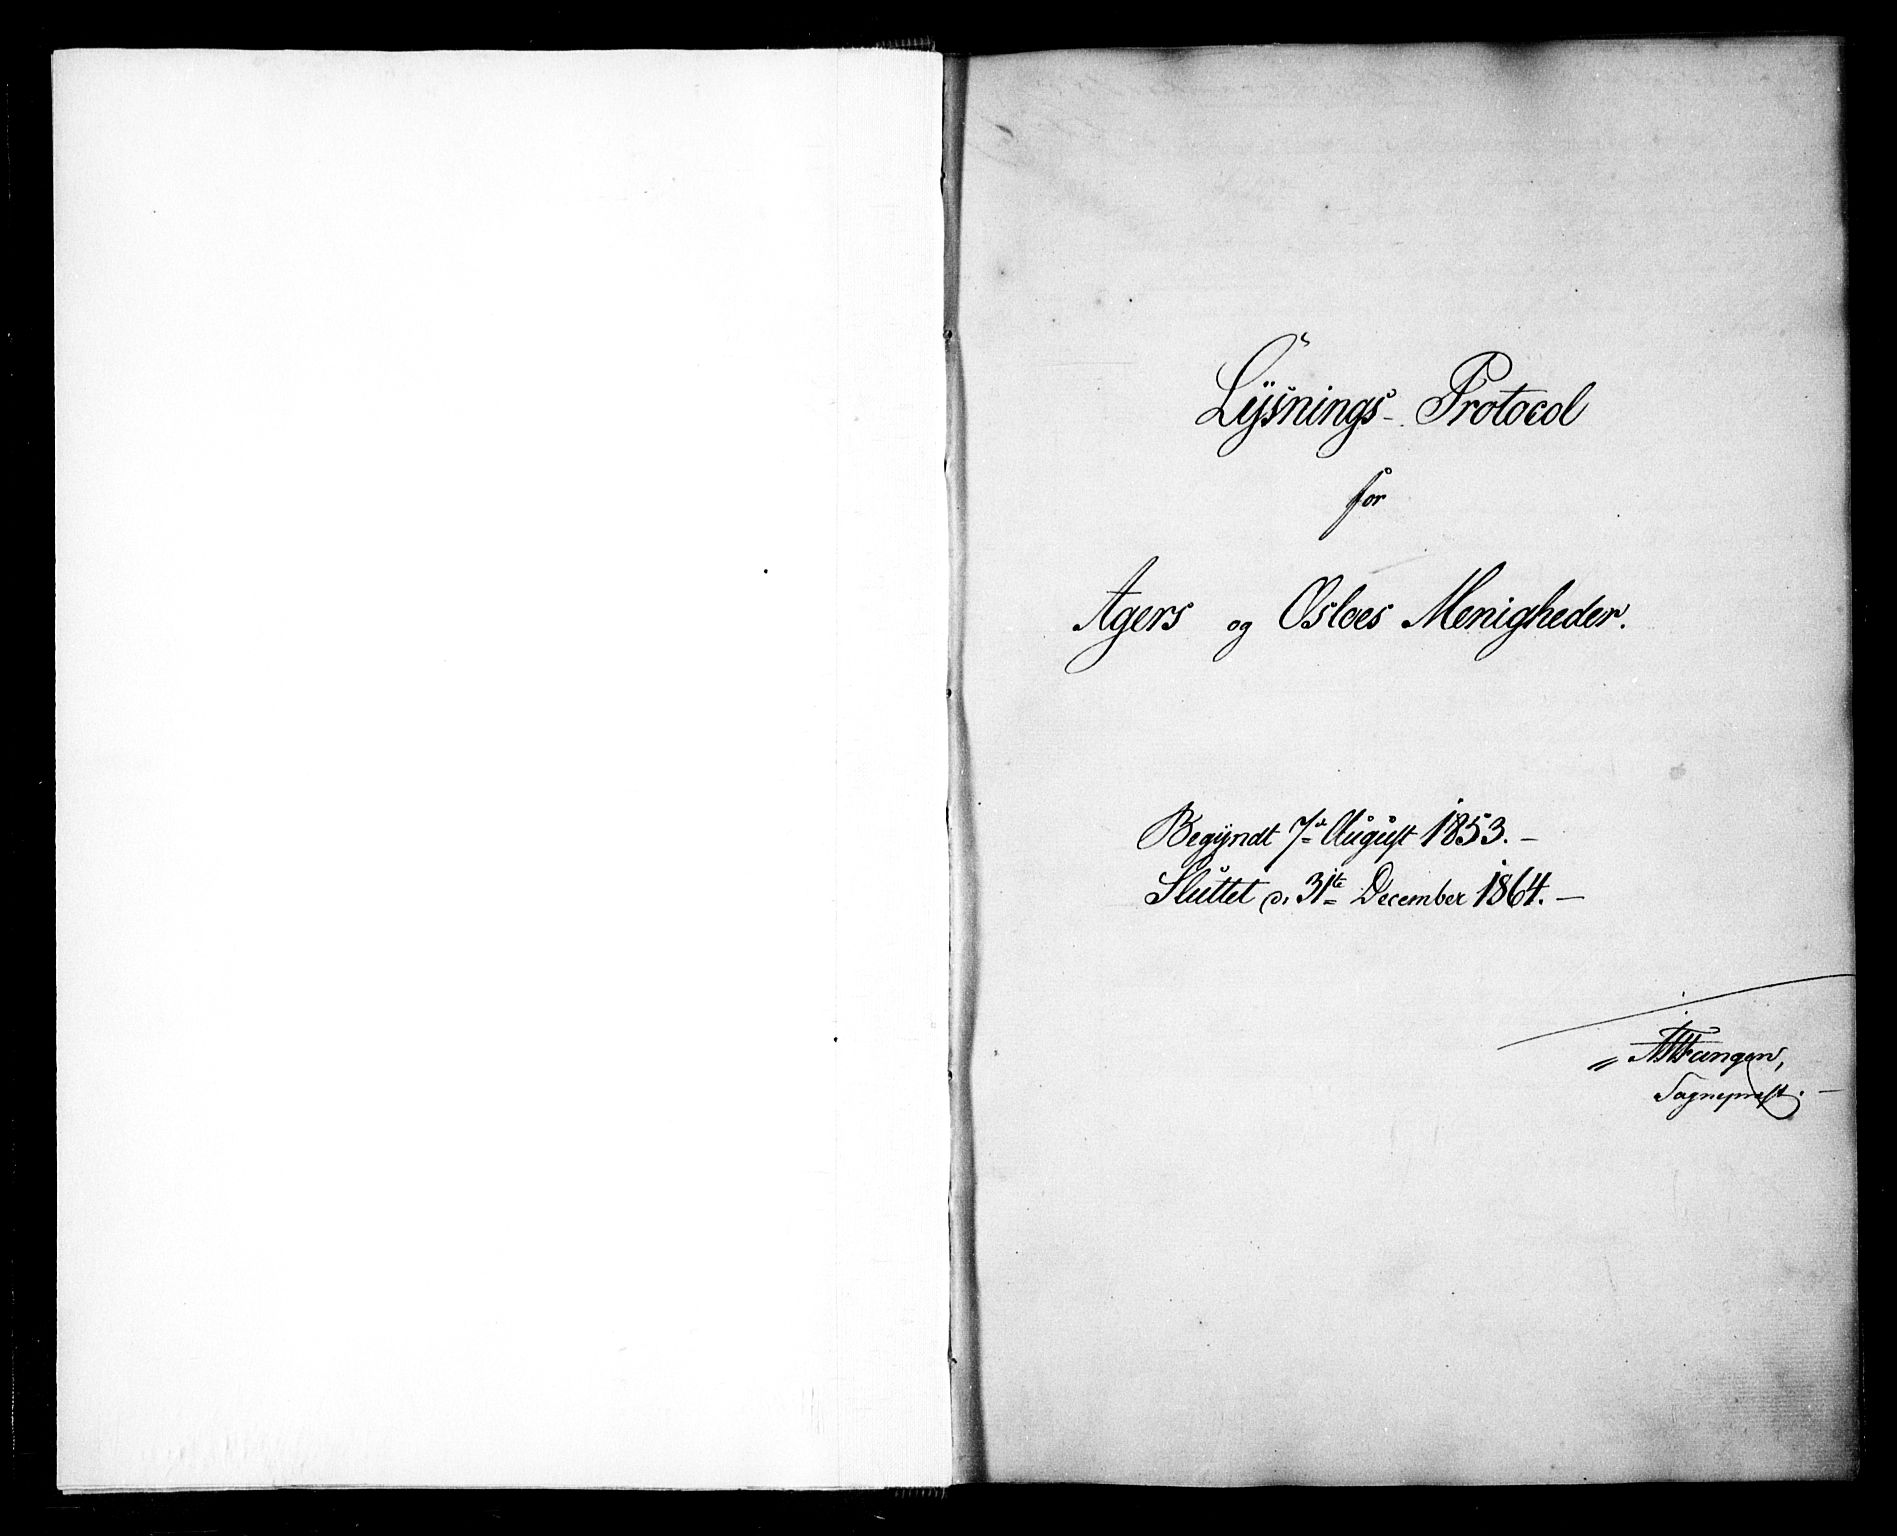 Lysnings- Protocol
for
Agers og Osloes Menigheder.
Begyndt 7de August 1853. –
Sluttet d. 31te December 1864. –
Fangen,
Sognepræst. –